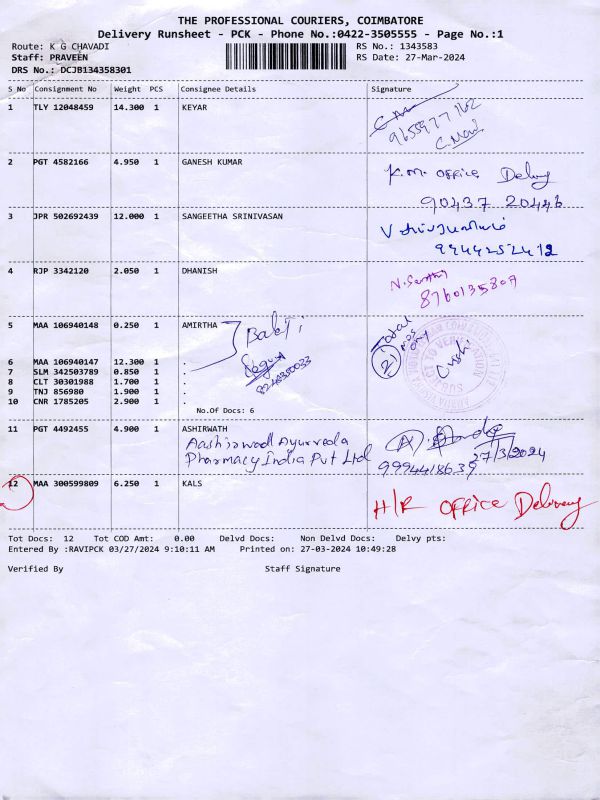 THE PROFESSIONAL COURIERS, COIMBATORE
Delivery Runsheet - PCK - Phone No.:0422-3505555 - Page No.:1
Route: K G CHAVADI
RS No.: 1343583
Staff: PRAVEEN
RS Date: 27-Mar-2024
DRS No.: DCJB134358301
S No Consignment No Weight PCS Consignee Details Signature
1 TLY 12048459 14.300 1 KEYAR
9655977162
C. Mani
2 PGT 4582166 4.950 1 GANESH KUMAR
K.M. OFFICE Delivy
90437 20446
3 JPR 502692439 12.000 1 SANGEETHA SRINIVASAN
9944252412
4 RJP 3342120 2.050 1 DHANISH
8760135807
5 MAA 106940148 0.250 1 AMIRTHA
6 MAA 106940147 12.300 1 .
7 SLM 342503789 0.850 1 .
8 CLT 30301988 1.700 1 .
9 TNJ 856980 1.900 1 .
10 CNR 1785205 2.900 1 .
No.Of Docs: 6
11 PGT 4492455 4.900 1 ASHIRWATH
Aashirwad Ayurveda
Pharmacy India Pvt Ltd
9994418639
27/3/2024
12 MAA 300599809 6.250 1 KALS
H/R OFFICE Delivery
Tot Docs: 12 Tot COD Amt: 0.00 Delvd Docs: Non Delvd Docs: Delvy pts:
Entered By :RAVIPCK 03/27/2024 9:10:11 AM Printed on: 27-03-2024 10:49:28
Verified By Staff Signature